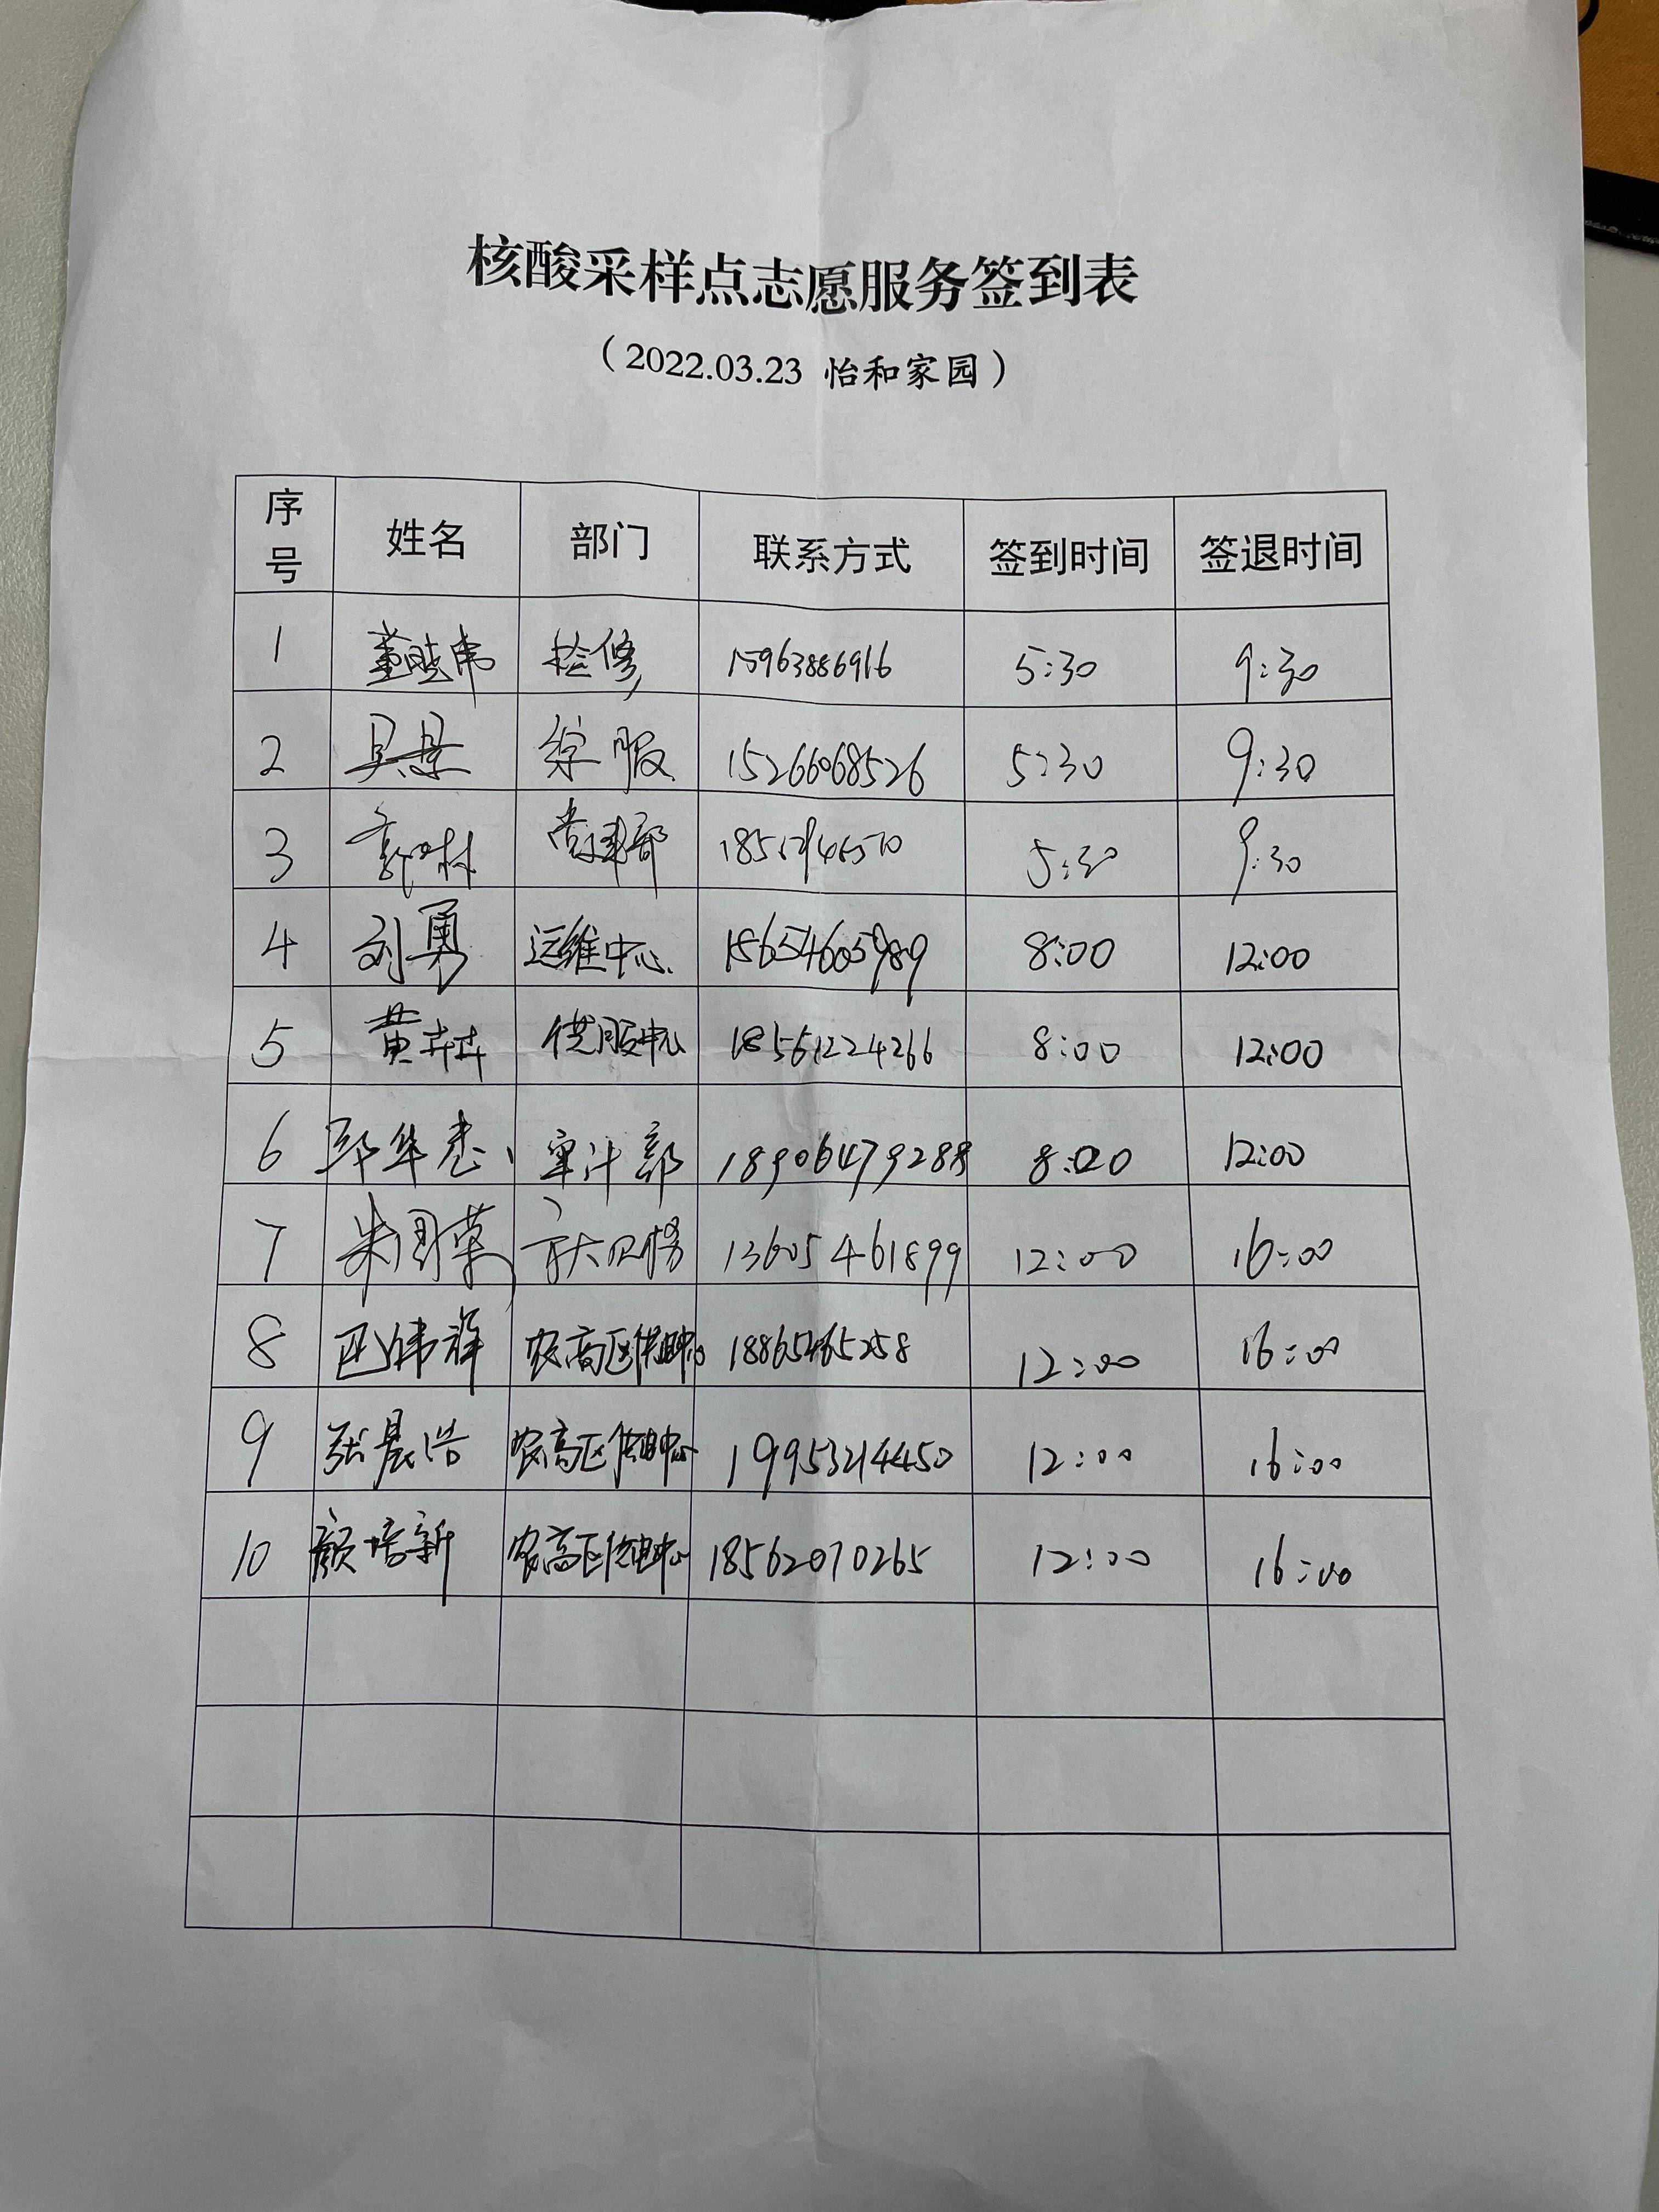 核酸采样点志愿服务签到表
（2022.03.23 怡和家园）
序号 姓名 部门 联系方式 签到时间 签退时间
1 检修 15963886916 5:30 9:30
2 吴昊 综服 15266068526 5:30 9:30
3 5:30 9:30
4 刘勇 运维中心 18654605989 8:00 12:00
5 黄卉卉 供服中心 18561224266 8:00 12:00
6 审计部 18906479288 8:00 12:00
7 13605461899 12:00 16:00
8 农高区供电中心 18865465258 12:00 16:00
9 张晨浩 农高区供电中心 19953214450 12:00 16:00
10 颜培新 农高区供电中心 18562070265 12:00 16:00